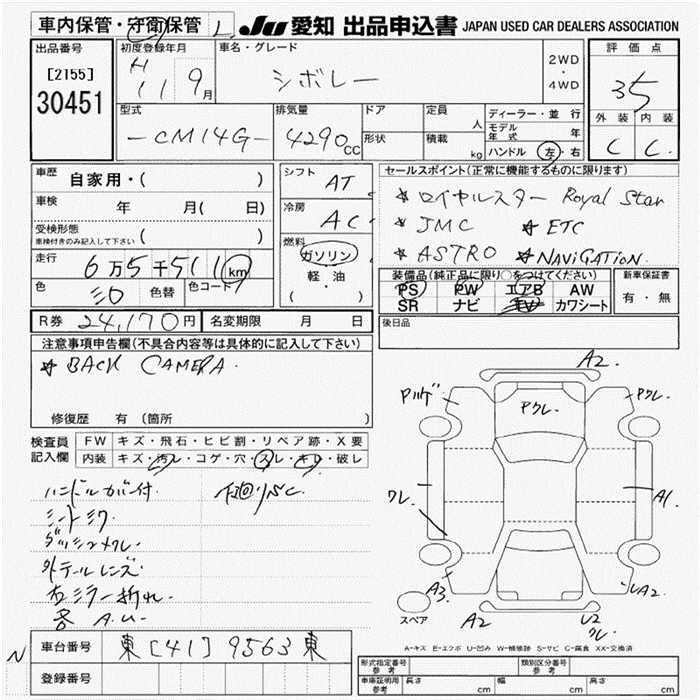 車内保管・守衛保管 L. JU 愛知 出品申込書 JAPAN USED CAR DEALERS ASSOCIATION
出品番号
[2155]
30451
初度登録年月
H 11 9月
車名・グレード
シボレー
2WD
・
4WD
評価点
35
外装 内装
C C.
型式
-CM14G-
排気量
4290CC
ドア
形状
定員 人
積載 kg
ディーラー・並行
モデル年式 年
ハンドル 左・右
車歴 自家用・( )
車検 年 月( 日)
受検形態
車検付きのみ記入して下さい ( )
走行 6万5千511km
色 シロ 色替 色コード
シフト AT
冷房 AC
燃料
ガソリン
軽・油
( ・ )
セールスポイント(正常に機能するものに限ります)
★ ロイヤルスター Royal Star
★ JMC ★ ETC
★ ASTRO ★ NAViGATiON.
装備品(純正品に限り○をつけてください)
PS PW エアB AW
SR ナビ TV カワシート
新車保証書
有・無
後日品
R券 24,170円 名変期限 月 日
注意事項申告欄(不具合内容等は具体的に記入して下さい)
★ BACK CAMERA.
修復歴 有 (箇所 )
検査員
記入欄
FW キズ・飛石・ヒビ割・リペア跡・X要
内装 キズ・汚レ・コゲ・穴・スレ・キレ・破レ
ハンドルカバー付.
シートシワ.
ダッシュメクレ.
外テールレンズ.
右ミラー折れ.
各 A.U.
A2.
Pクレ.
Pクレ.
クレ.
A1.
A3
A2
U2
クレ.
A2
スペア
A-キズ E-エクボ U-凹み W-補修跡 S-サビ C-腐食 XX-交換済
N
車台番号 東[41]9563東
登録番号
形式指定番号 参考
類別区分番号 参考
車庫証明用 参考 長さ cm 幅 cm 高さ cm